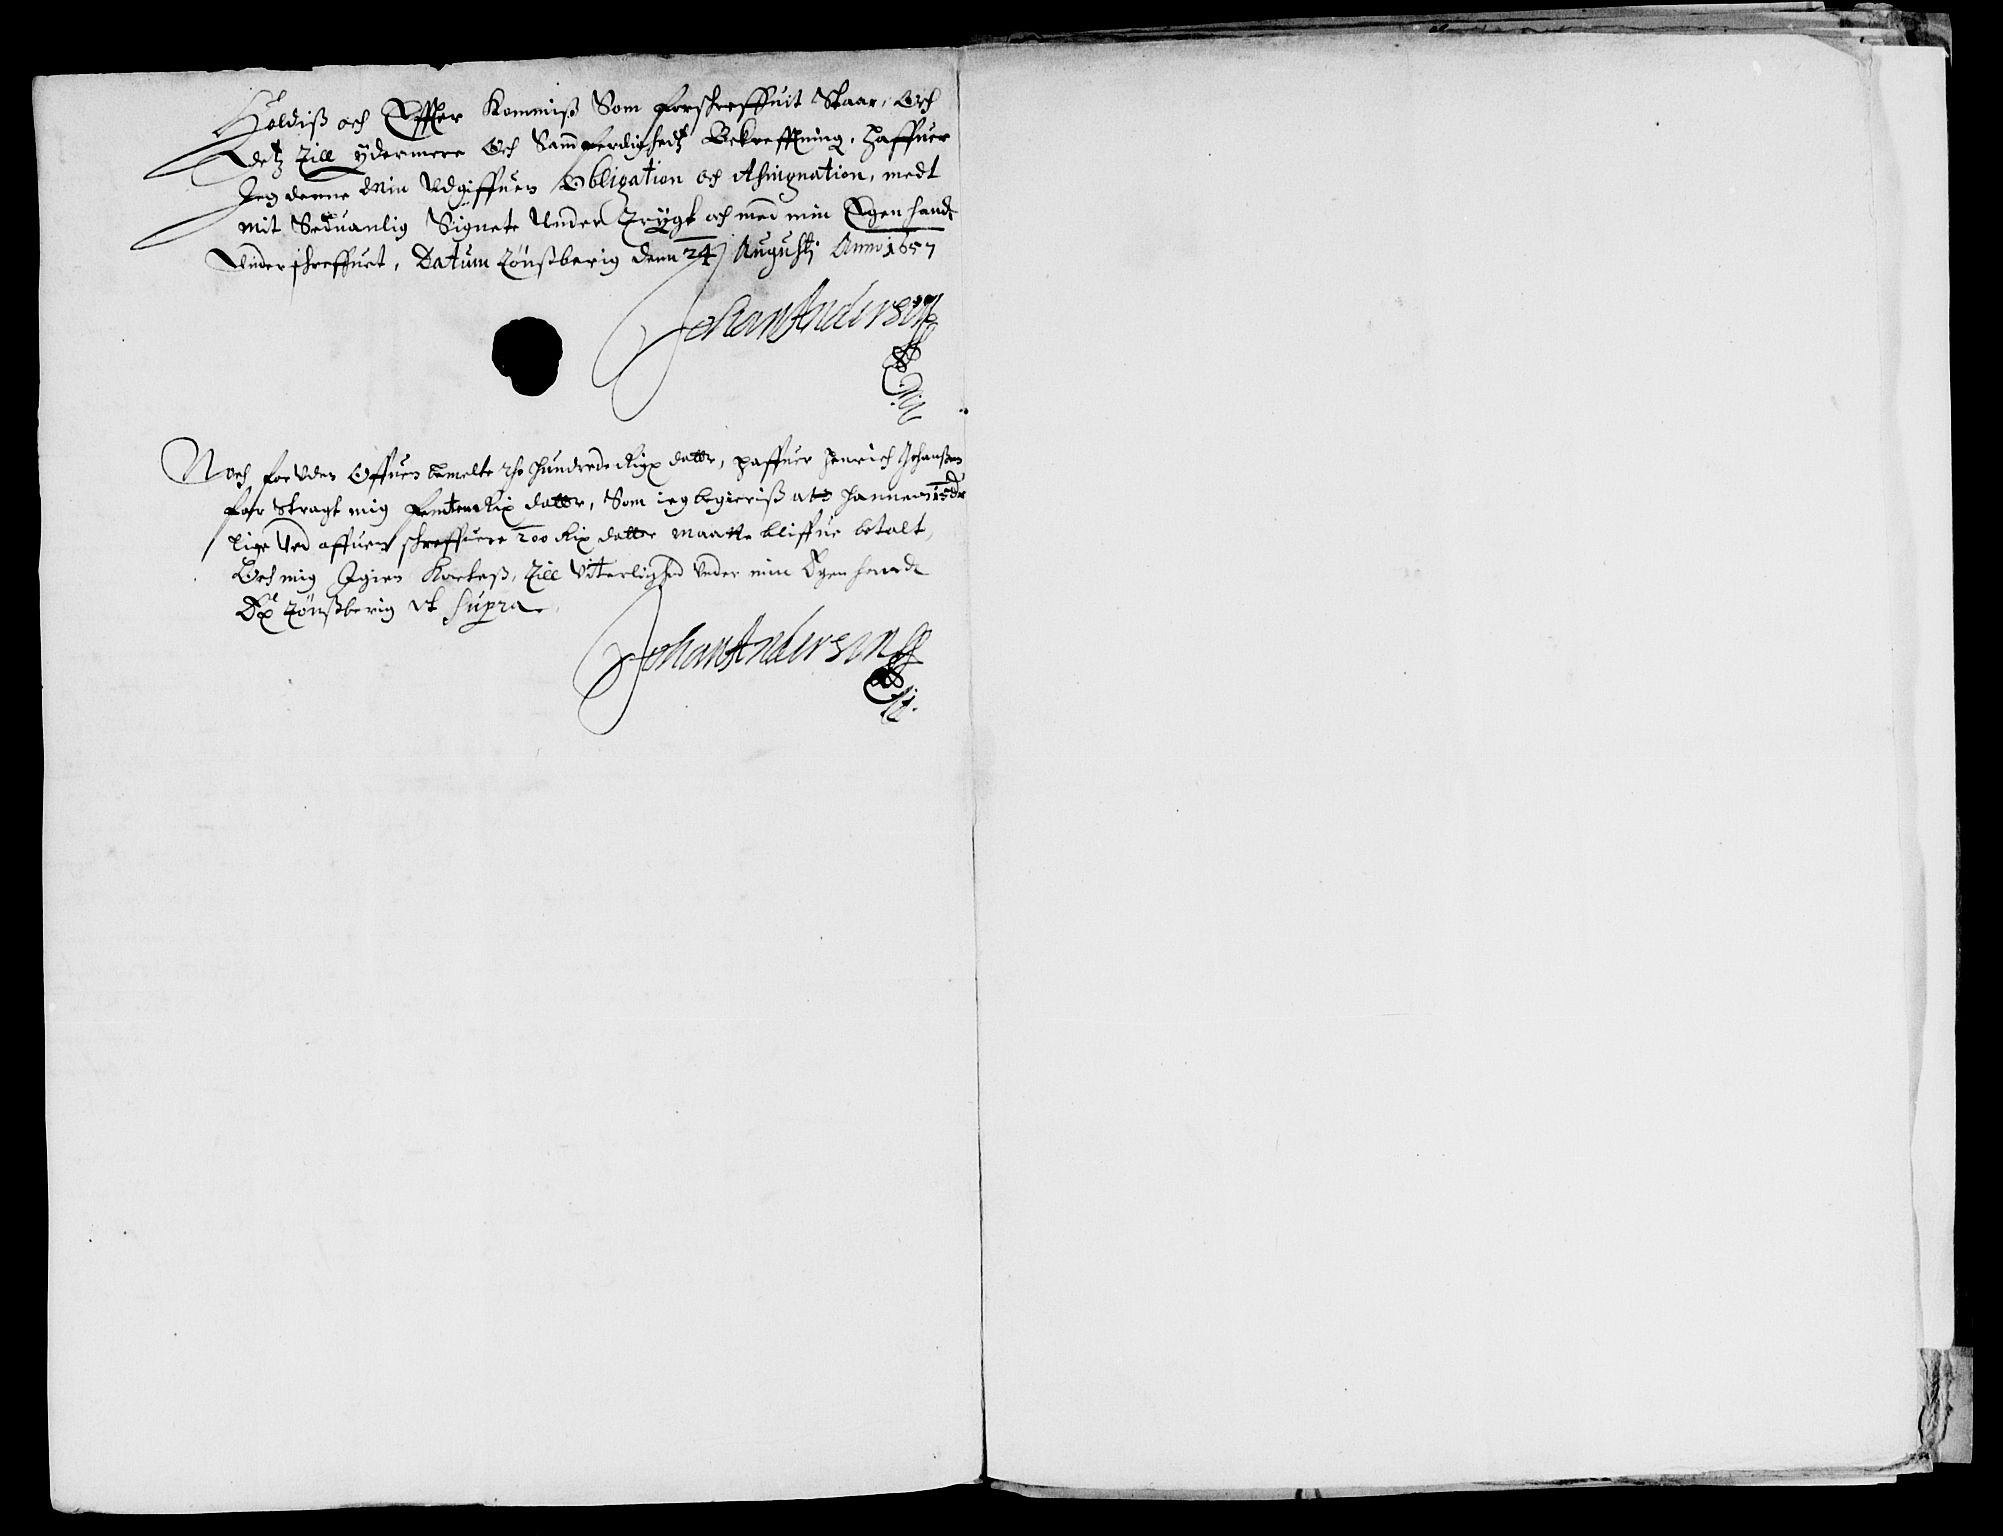 Holdiß och Effter Kommiß Som forschreffuit Staar, Och
detz till ydermere Och Sandferdighedtz Bekrefftning, haffuer
Jeg denne Min Udgiffuen Obligation och Assingnation, medt
mit Seduanlig Signete Under Trygt och med min Egen handt
Underschreffuet, Datum Tönßberig denn 24 Augusti Anno 1657
Johan Andersin
Noch foruden Offuen bemelte tho hundrede Rix daller, haffuer Henrich Johanßen
for stragt mig femten Rix daller, Som ieg begieriß at hannem 15 dr
lige Ved offuen schreffuene 200 Rix daller maatte bliffue betalt,
Och mig Igien Korteß, Till Vitterlighed Under min Egen handt
Tönßberig Ut supra
Johan Andersin